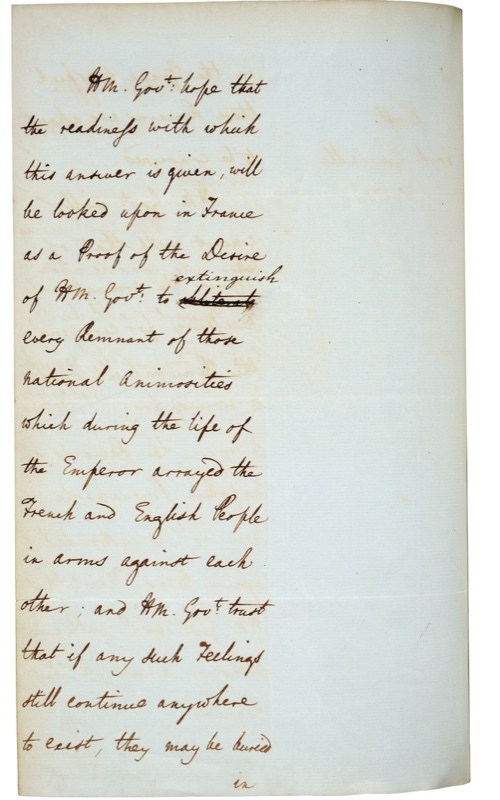 HM. Govt. hope that
the readiness with which
this answer is given, will
be looked upon in France
as a Proof of the Desire
extinguish
of HM. Govt. to obliterate
every Remnant of those
national Animosities
which during the life of
the Emperor arrayed the
French and English People
in arms against each
other; and HM. Govt. trust
that if any such Feelings
still continue anywhere
to exist, they may be buried
in